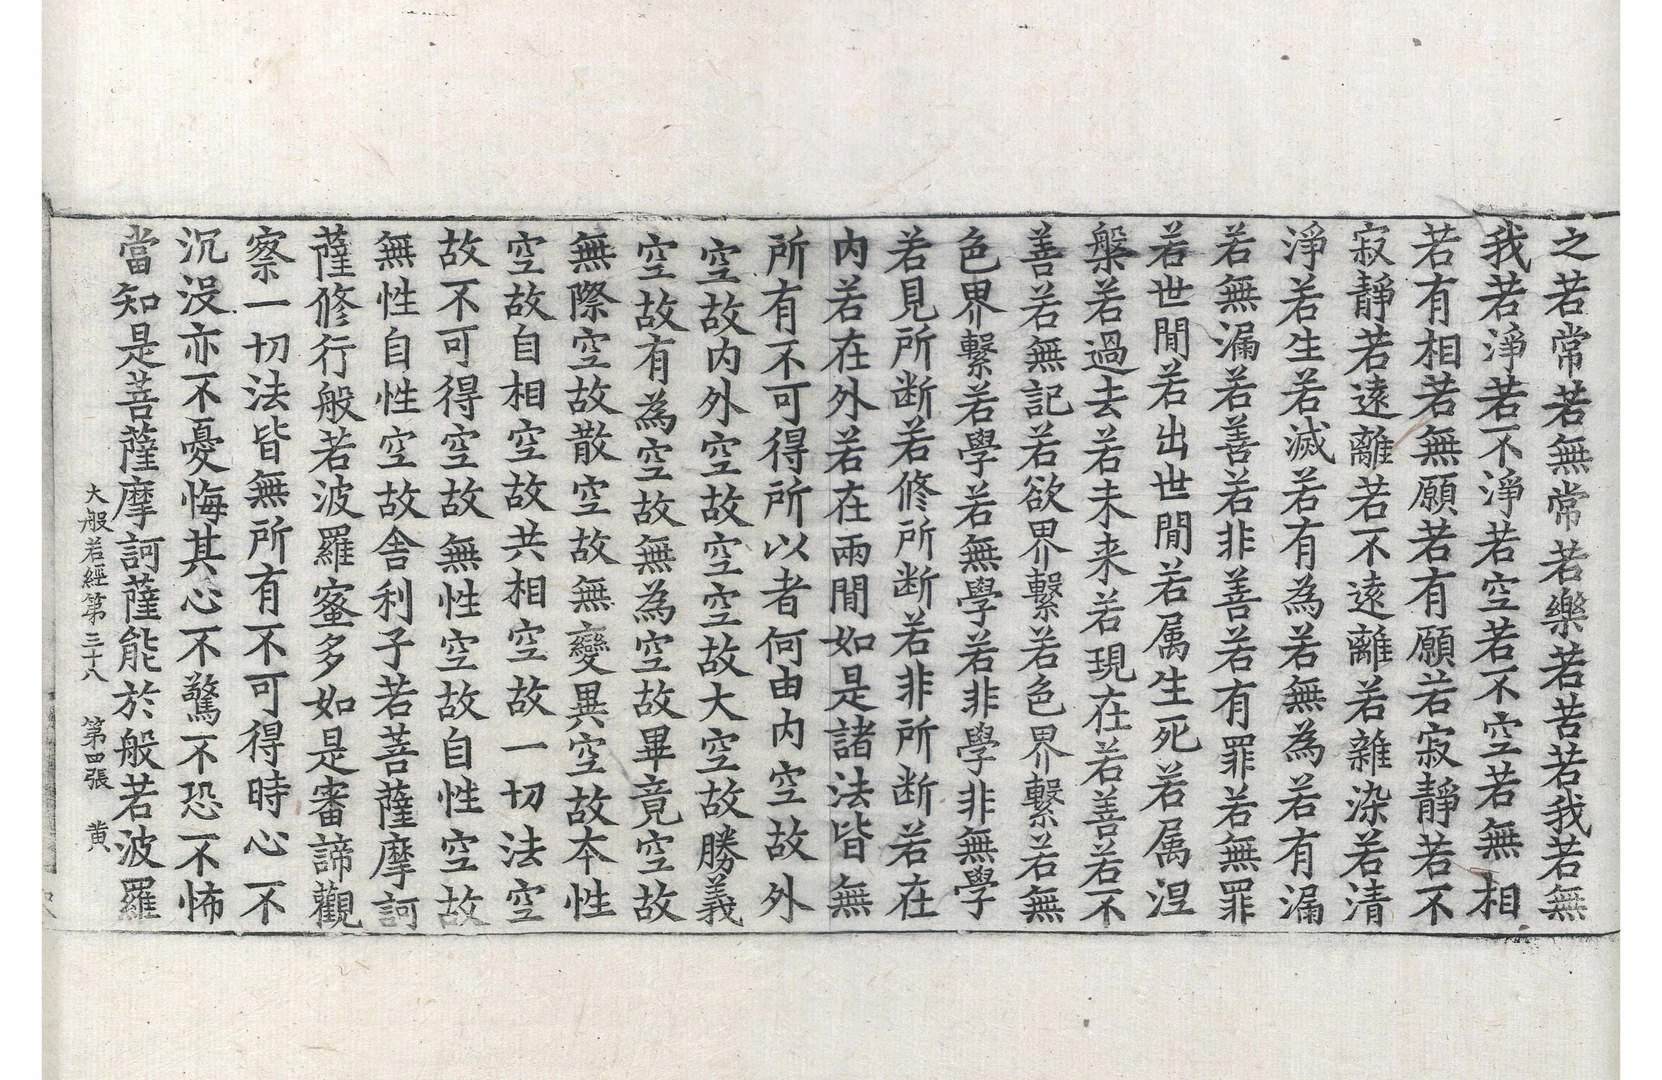 之若常若無常若樂若苦若我若無
我若淨若不淨若空若不空若無相
若有相若無願若有願若寂靜若不
寂靜若遠離若不遠離若雜染若清
淨若生若滅若有為若無為若有漏
若無漏若善若非善若有罪若無罪
若世間若出世間若属生死若属涅
槃若過去若未来若現在若善若不
善若無記若欲界繫若色界繫若無
色界繫若學若無學若非學非無學
若見所断若修所断若非所断若在
内若在外若在兩間如是諸法皆無
所有不可得所以者何由内空故外
空故内外空故空空故大空故勝義
空故有為空故無為空故畢竟空故
無際空故散空故無變異空故本性
空故自相空故共相空故一切法空
故不可得空故無性空故自性空故
無性自性空故舍利子若菩薩摩訶
薩修行般若波羅蜜多如是審諦觀
察一切法皆無所有不可得時心不
沉没亦不憂悔其心不驚不恐不怖
當知是菩薩摩訶薩能於般若波羅
大般若經第三十八 第四張 黄